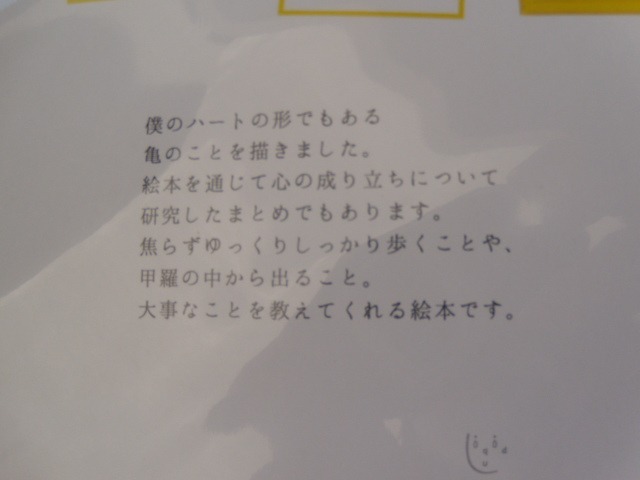 僕のハートの形でもある
亀のことを描きました。
絵本を通じて心の成り立ちについて
研究したまとめでもあります。
焦らずゆっくりしっかり歩くことや、
甲羅の中から出ること。
大事なことを教えてくれる絵本です。